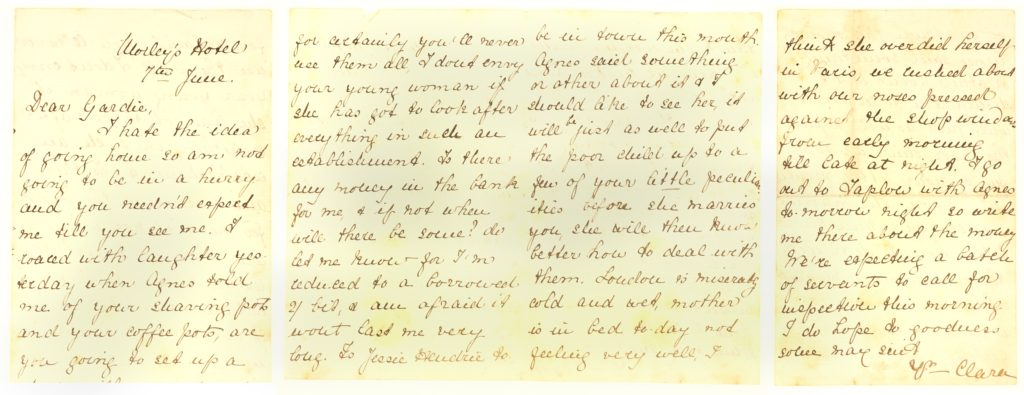 Morley's Hotel
7th June.
Dear Gardie,
I hate the idea
of going home so am not
going to be in a hurry
and you needn't expect
me till you see me. I
roared with laughter yes-
terday when Agnes told
me of your shaving pots
and your coffee pots, are
you going to set up a
for certainly you'll never
use them all, I dont envy
your young woman if
she has got to look after
everything in such an
establishment. Is there
any money in the bank
for me, & if not when
will there be some? do
let me know for I'm
reduced to a borrowed
£ bit, & am afraid it
wont last me very
long. Is Jessie Hendrie to
be in town this month.
Agnes said something
or other about it & I
should like to see her, it
will be just as well to put
the poor child up to a
few of your little peculi-
ities before she marries
you, she will then know
better how to deal with
them. London is miserably
cold and wet, mother
is in bed to-day not
feeling very well, I
think she overdid herself
in Paris, we rushed about
with our noses pressed
against the shop windows
from early morning
till late at night. I go
out to Taplow with Agnes
to-morrow night so write
me there about the money
We're expecting a batch
of servants to call for
inspection this morning
I do hope to goodness
some may suit
Yrs Clara